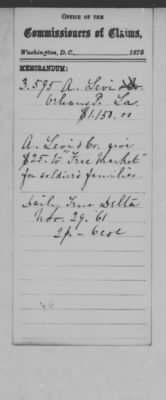 OFFICE OF THE
Commissioners of Claims,
Washington, D.C., 1875
MEMORANDUM:
3.595 A. Levi & Co.
Orleans P. La.
$1.150.00
A. Levi & Co. give
$25. to Free Market
for soldier's families.
Daily True Delta
Nov. 29. 61
2p. - 6 col